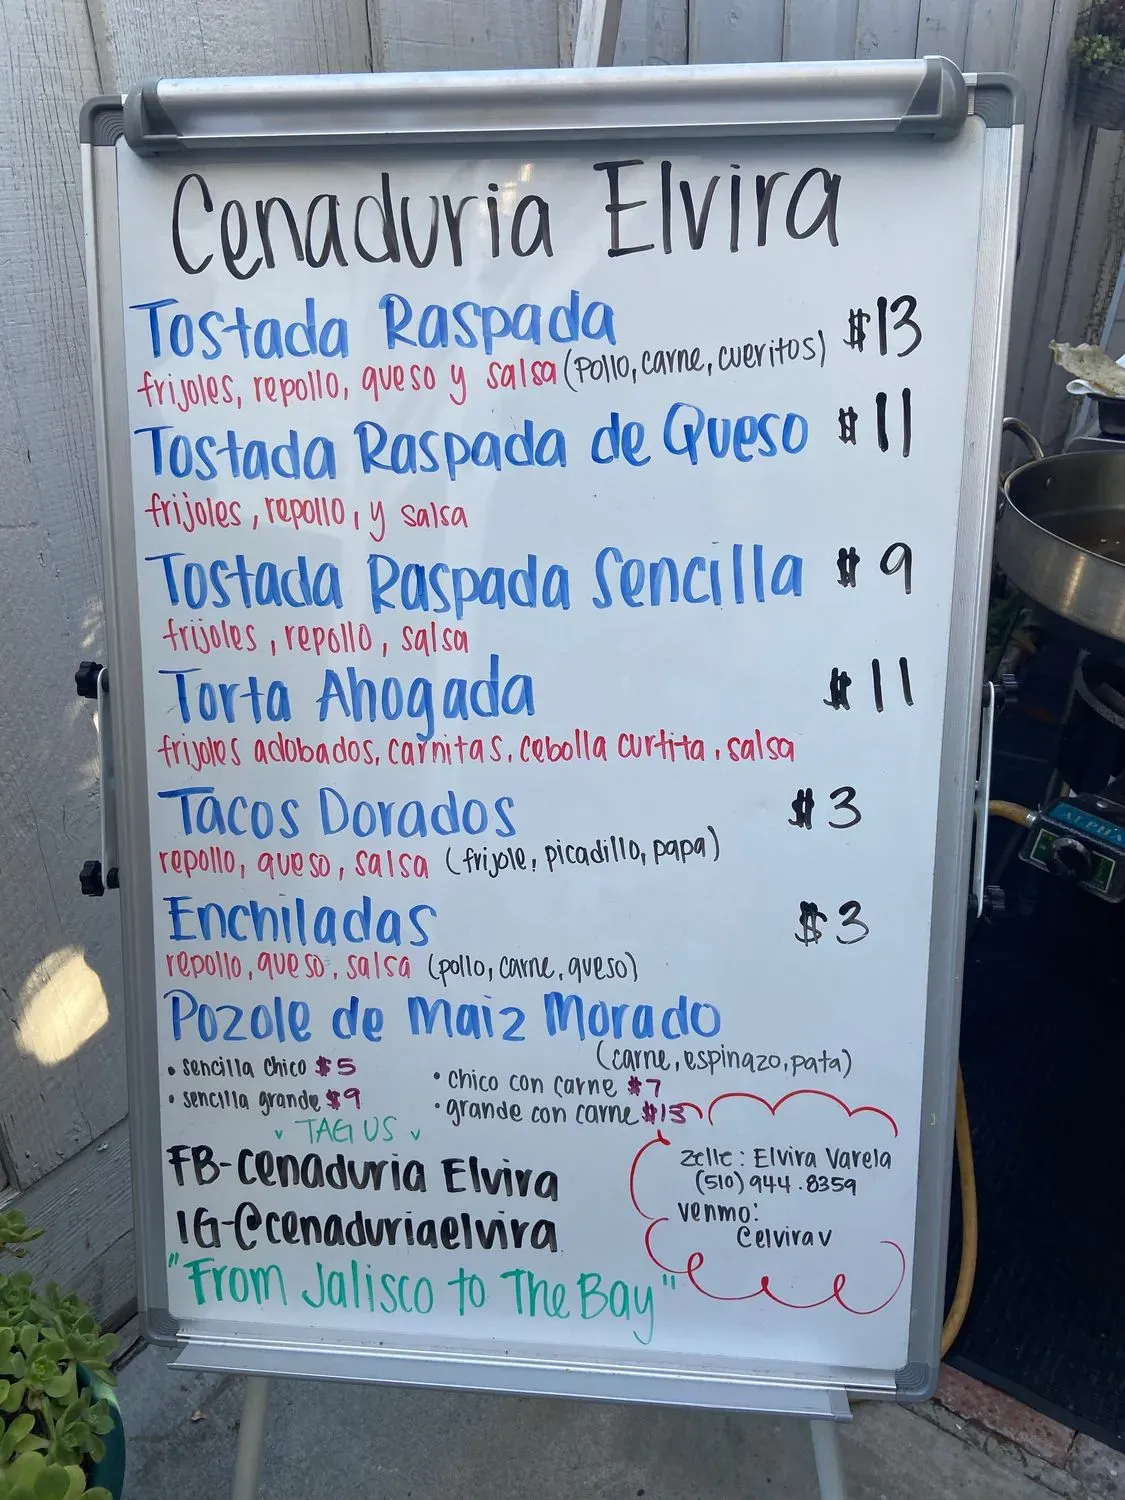 Cenaduria Elvira
Tostada Raspada $13
frijoles, repollo, queso y salsa (pollo, carne, cueritos)
Tostada Raspada de Queso $11
frijoles, repollo, y salsa
Tostada Raspada Sencilla $9
frijoles, repollo, salsa
Torta Ahogada $11
frijoles adobados, carnitas, cebolla curtita, salsa
Tacos Dorados $3
repollo, queso, salsa (frijole, picadillo, papa)
Enchiladas $3
repollo, queso, salsa (pollo, carne, queso)
Pozole de Maiz Morado
(carne, espinazo, pata)
• sencilla chico $5
• sencilla grande $9
• chico con carne $7
• grande con carne $13
TAG US
FB-Cenaduria Elvira
IG-@cenaduriaelvira
"From Jalisco to The Bay"
Zelle: Elvira Varela
(510) 944.8359
Venmo:
Celvirav
ALPHA